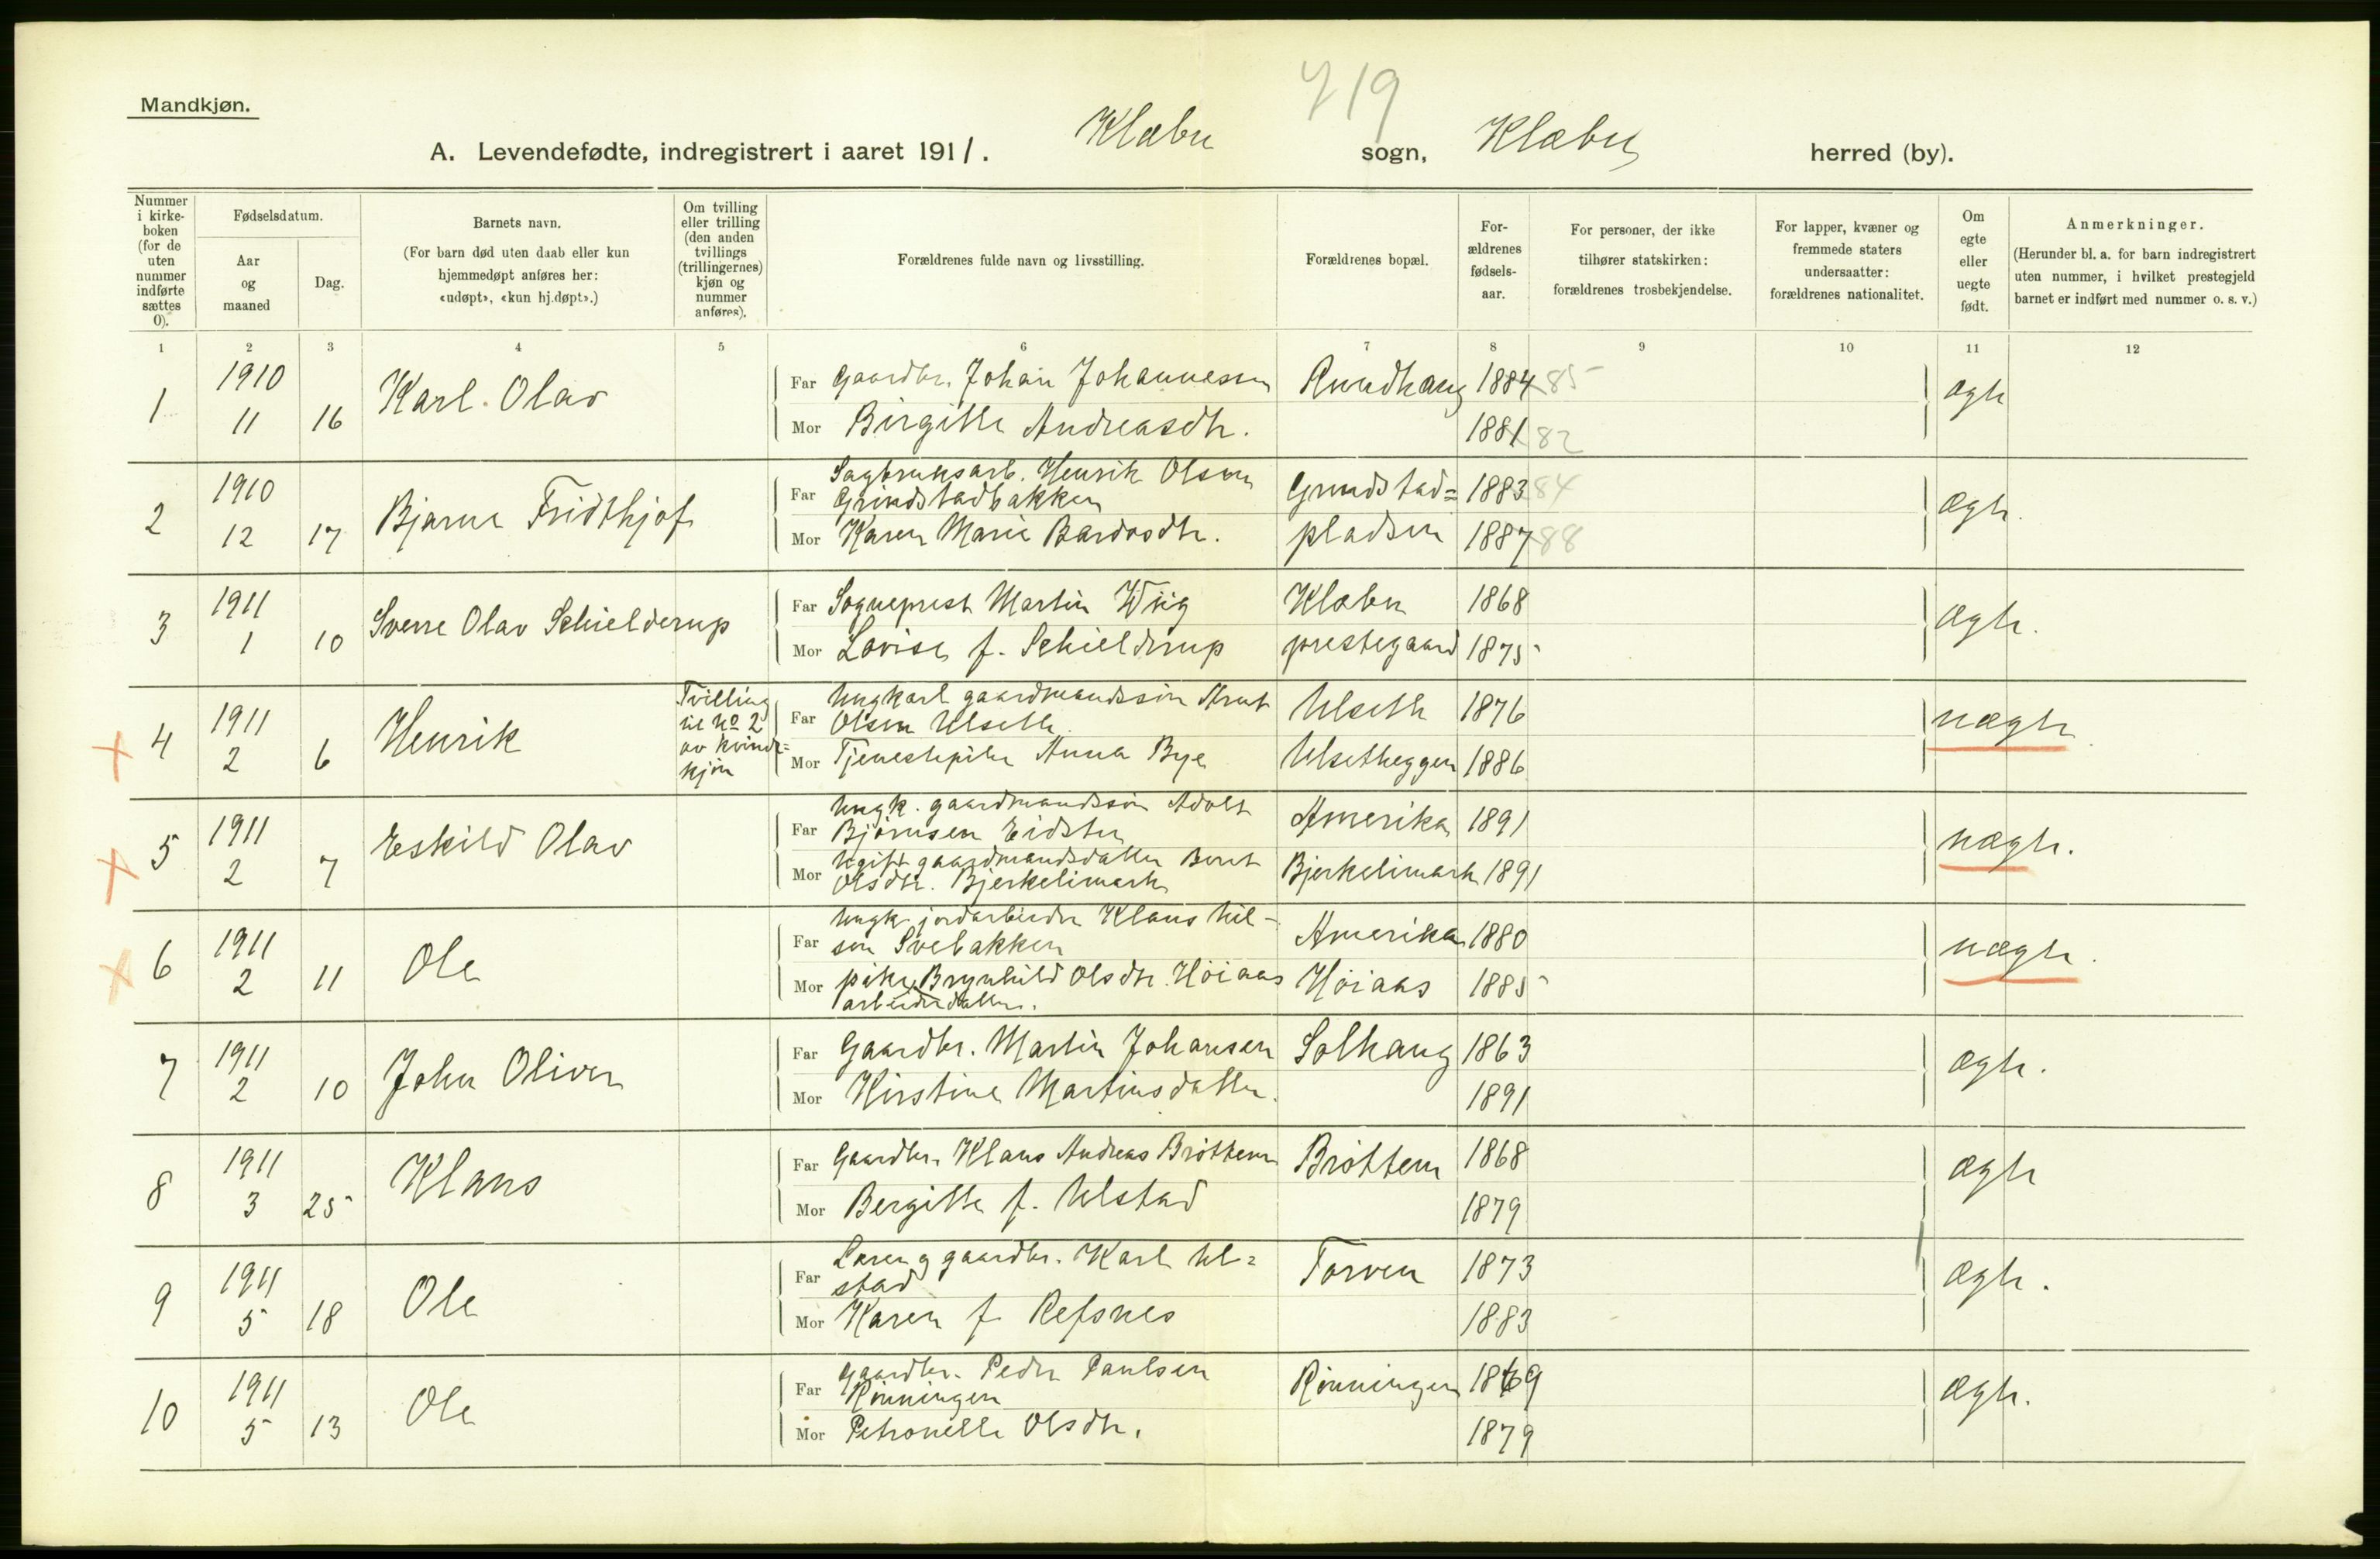 719
Mandkjøn.
A. Levendefødte, indregistrert i aaret 1911. Klæbu sogn, Klæbu herred (by).
Nummer i kirke-boken (for de uten nummer indførte sættes 0).
Fødselsdatum.
Aar og maaned
Dag.
Barnets navn.
(For barn død uten daab eller kun hjemmedøpt anføres her: «udøpt», «kun hj.døpt».)
Om tvilling eller trilling (den anden tvillings (trillingernes) kjøn og nummer anføres).
Forældrenes fulde navn og livsstilling.
Forældrenes bopæl.
For-ældrenes fødsels-aar.
For personer, der ikke tilhører statskirken: forældrenes trosbekjendelse.
For lapper, kvæner og fremmede staters undersaatter: forældrenes nationalitet.
Om egte eller uegte født.
Anmerkninger.
(Herunder bl. a. for barn indregistrert uten nummer, i hvilket prestegjeld barnet er indført med nummer o. s. v.)
1 2 3 4 5 6 7 8 9 10 11 12
1 1910 11 16 Karl Olav
Far Gaardbr. Johan Johannesen Rundhaug 1884 85 ægte
Mor Birgitte Andreasdtr. 1881 82
2 1910 12 17 Bjarne Fridthjof
Far Sagbruksarb. Henrik Olsen Grindstadbakken Grindstad= 1883 84 ægte.
Mor Karen Marie Bardosdtr. pladsen 1887 88
3 1911 1 10 Sverre Olav Schielderup
Far Sogneprest Martin Wiig Klæbu 1868 ægte.
Mor Lovise f. Schielderup prestegaard 1875
4 1911 2 6 Henrik Tvilling til No 2 av kvinde=kjøn
Far Ungkarl gaardmandssøn Arnt Olsen Ulseth Ulseth 1876 uægte
Mor Tjenestepike Anna Bye Ulsetheggen 1886
5 1911 2 7 Eskild Olav
Far Ungk. gaardmandssøn Adolf Bjørnsen Eidstu Amerika 1891 uægte.
Mor Ugift gaardmandsdatter Beret Olsdtr. Bjerkelimark Bjerkelimark 1891
6 1911 2 11 Ole
Far Ungk. jordarbeider Klaus Nil-sen Svebakken Amerika 1880 uægte.
Mor pike, Brynhild Olsdtr. Høiaas arbeiderdatter. Høiaas 1885
7 1911 2 10 John Oliver
Far Gaardbr. Martin Johansen Solhaug 1863 ægte.
Mor Kirstine Martinsdatter. 1891
8 1911 3 25 Klaus
Far Gaardbr. Klaus Andreas Brøttem Brøttem 1868 ægte
Mor Bergitte f. Ulstad 1879
9 1911 5 18 Ole
Far Lærer og gaardbr. Karl Ul=stad Torven 1873 ægte.
Mor Karen f. Refsnes 1883
10 1911 5 13 Ole
Far Gaardbr. Peder Paulsen Rønningen Rønningen 1869 ægte.
Mor Petronelle Olsdtr. 1879